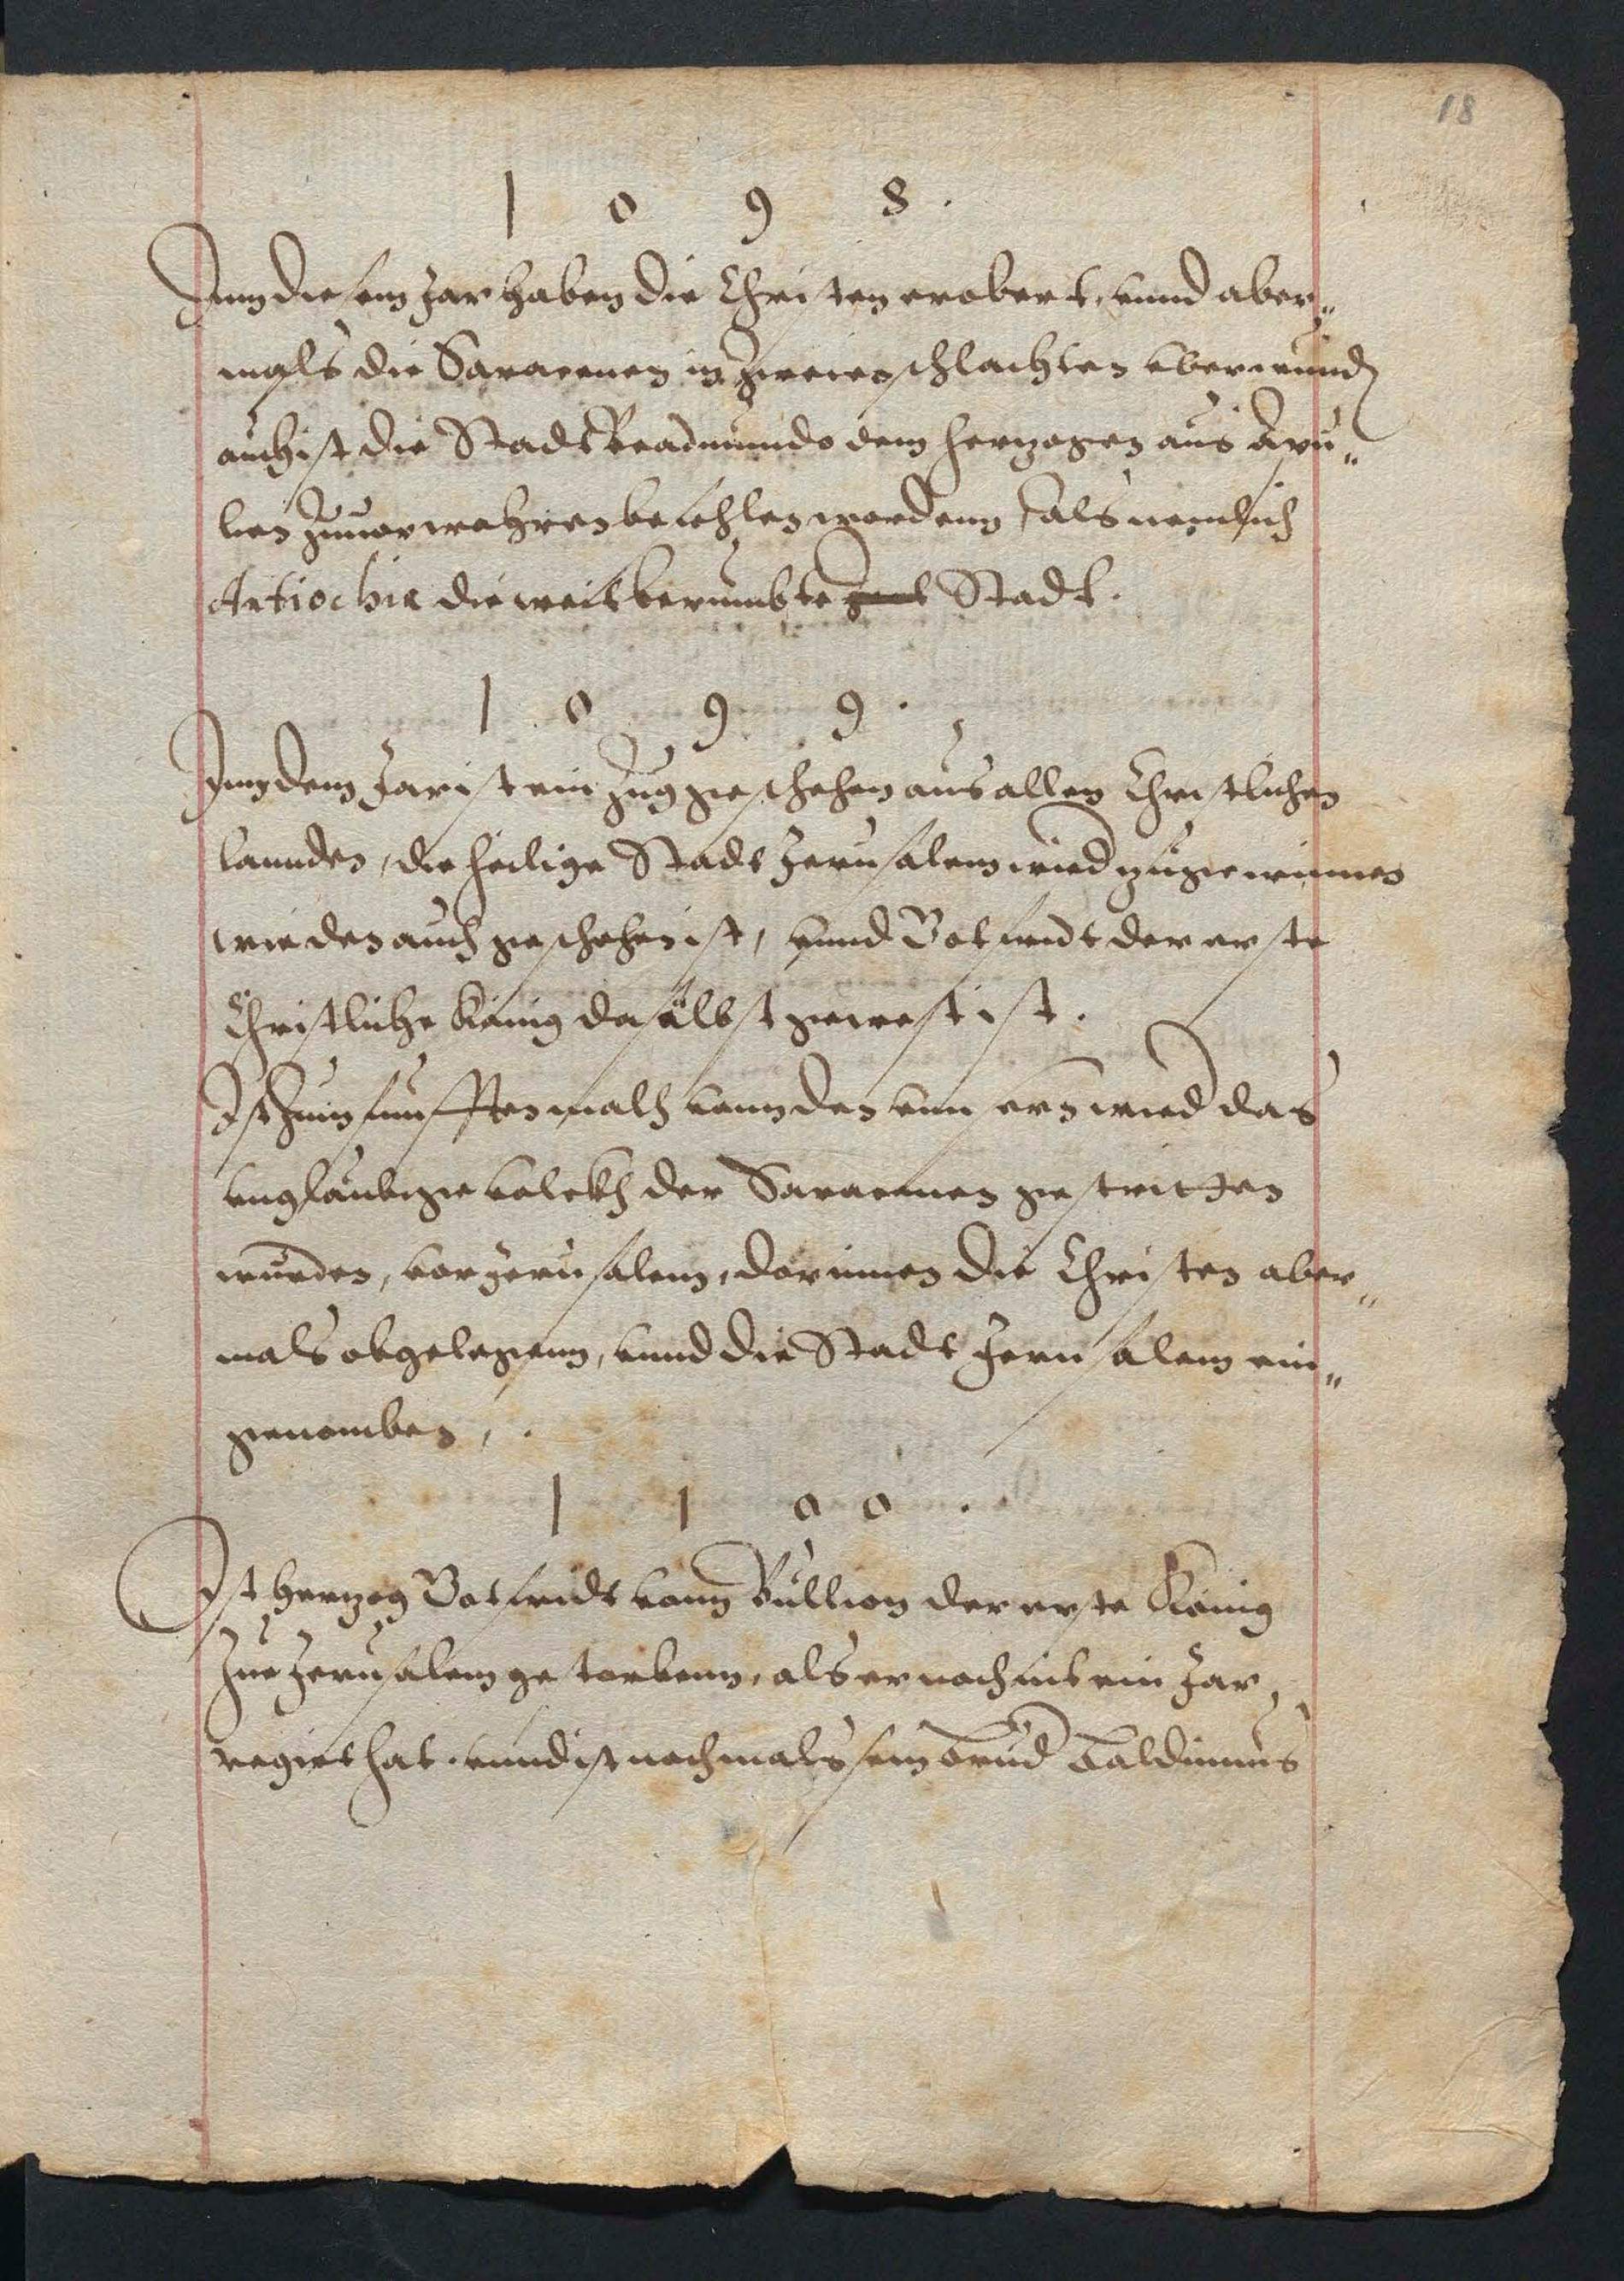 18
1 0 9 8 .
Inn diesem Jar haben die Christen erobert, vnnd aber„
mals die Saracenen in zweien schlachten vberwund
auch ist die Stadt Beadmundo dem herzogen aus Apu„
lien zuuorwahren befohlen wordenn, als nemlich
Antiochia die weitberumbte Stadt.
1 0 9 9 .
Inn dem Jar ist ein Zug geschehen aus allen Christlichen
lannden, die heilige Stadt Jerusalem wied zugewinnen
wie den auch geschehen ist, vnnd Gotfridt der erste
Christliche König daselbst gewest ist.
Ist zum funfften malh vonn den vnsern wied das
vnglaubige volckh der Saracenen gestritten
wurden, vor Jerusalem, dorinnen die Christen aber„
mals obgelegenn, vnnd die Stadt Jerusalem ein„
genomben,.
1 1 0 0 .
Ist hertzog Gotfridt vonn Bullion der erste König
Zue Jerusalem gestorbenn, als er noch nit ein Jar
regirt hat. vnnd ist nochmals sein brud Baldinnus